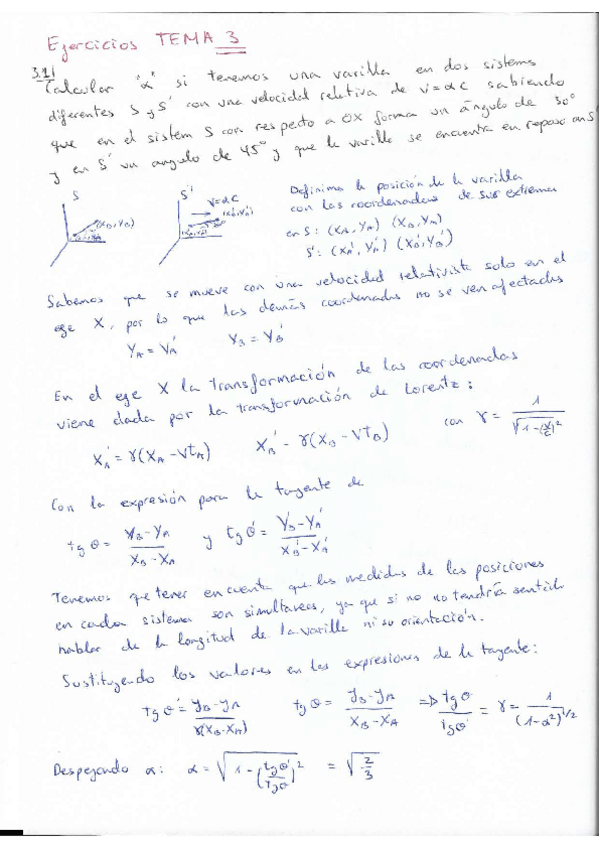 Ejercicios TEMA 3
3.1/ Calcular "α" si tenemos una varilla en dos sistems
diferentes S y S' con una velocidad relativa de v=αc sabiendo
que en el sistem S con respecto a OX forma un ángulo de 30°
y en S' un angulo de 45° y que la varilla se encuentra en reposo en S'
S
(XB,YB)
S'
V=αC
(XB',YB')
Definimo la posición de la varilla
con las coordenadas de sus extremos
en S: (XA, YA) (XB, YB)
S': (XA', YA') (XB', YB')
Sabemos que se mueve con una velocidad relativista solo en el
eje X, por lo que las demás coordenadas no se ven afectadas
YA = YA' YB = YB'
En el eje X la transformación de las coordenadas
viene dada por la transformación de Lorentz:
XA' = γ(XA - VtA) XB' - γ(XB - VtB) con γ = 1/√(1-(v/c)²)
Con la expresión para la tangente de
tg θ = (YB-YA)/(XB-XA) y tg θ' = (YB'-YA')/(XB'-XA')
Tenemos que tener en cuenta que las medidas de las posiciones
en cada sistema son simultaneas, ya que si no no tendría sentido
hablar de la longitud de la varilla ni su orientación.
Sustituyendo los valores en las expresiones de la tangente:
tg θ' = (YB-YA)/(γ(XB-XA)) tg θ = (YB-YA)/(XB-XA) ⇒ tg θ/tg θ' = γ = 1/(1-α²)^1/2
Despejando α: α = √(1-(tg θ'/tg θ)²) = √(2/3)